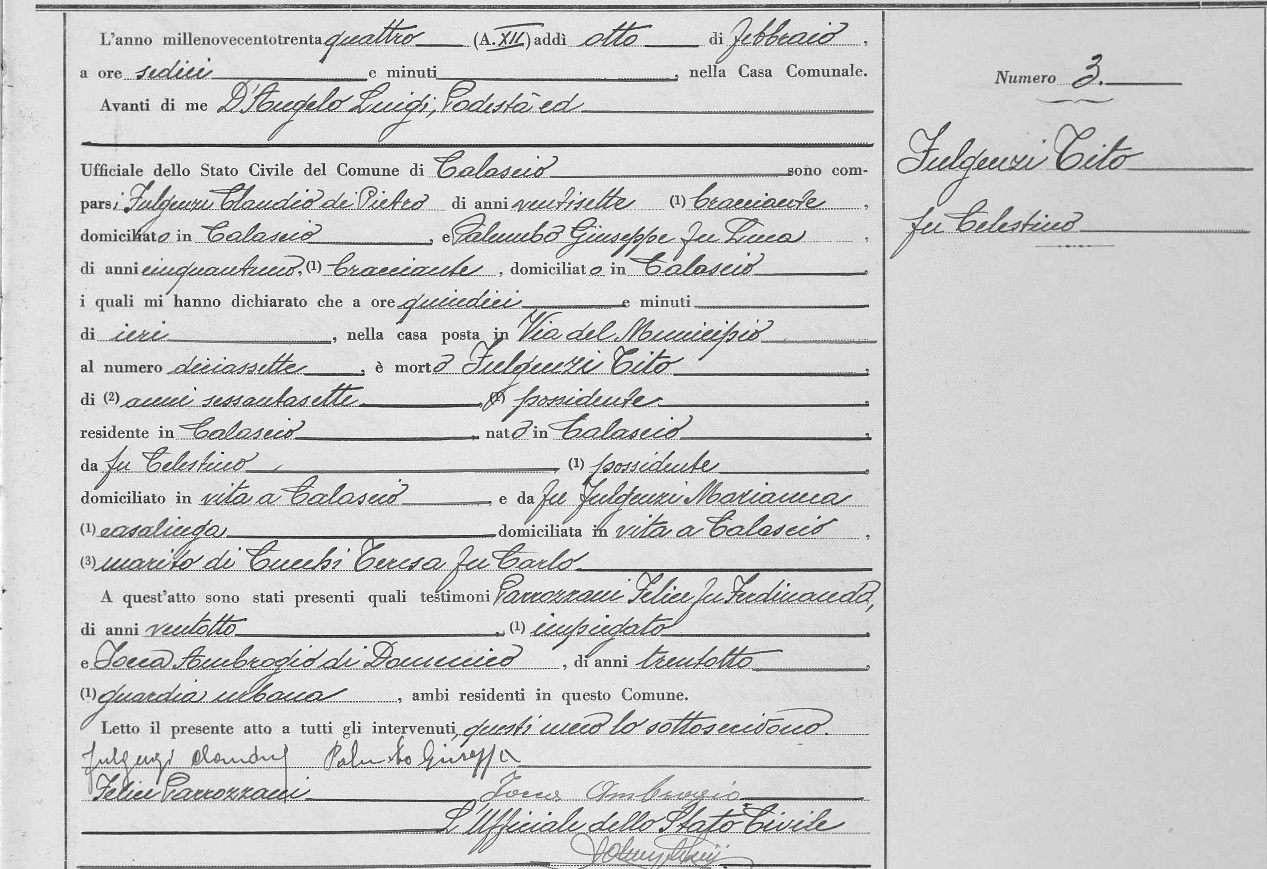 L'anno millenovecentotrenta quattro (A. XII) addì otto di febbraio,
a ore sedici e minuti , nella Casa Comunale.
Avanti di me D'Angelo Luigi, Podestà ed
Ufficiale dello Stato Civile del Comune di Calascio sono com-
parsi Fulgenzi Claudio di Pietro di anni ventisette (1) bracciante,
domiciliato in Calascio, e Palumbo Giuseppe fu Luca,
di anni cinquantuno, (1) bracciante, domiciliato in Calascio,
i quali mi hanno dichiarato che a ore quindici e minuti
di ieri, nella casa posta in Via del Municipio
al numero diciassette, è morto Fulgenzi Tito
di (2) anni sessantasette, (1) possidente,
residente in Calascio, nato in Calascio,
da fu Celestino, (1) possidente,
domiciliato in vita a Calascio, e da fu Fulgenzi Marianna
(1) casalinga domiciliata in vita a Calascio,
(3) marito di Cucchi Teresa fu Carlo
A quest'atto sono stati presenti quali testimoni Parrozzani Felice fu Ferdinando,
di anni ventotto, (1) impiegato,
e Iocca Ambrogio di Domenico, di anni trentotto,
(1) guardia urbana, ambi residenti in questo Comune.
Letto il presente atto a tutti gli intervenuti, questi meco lo sottoscrivono.
Fulgenzi Claudio Palumbo Giuseppe
Felice Parrozzani Iocca Ambrogio
L'Ufficiale dello Stato Civile
Numero 3.
Fulgenzi Tito
fu Celestino